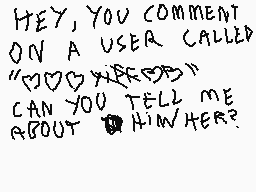 HEY, YOU COMMENT
ON A USER CALLED
"♡♡♡ ♡♡"
CAN YOU TELL ME
ABOUT HIM HER?